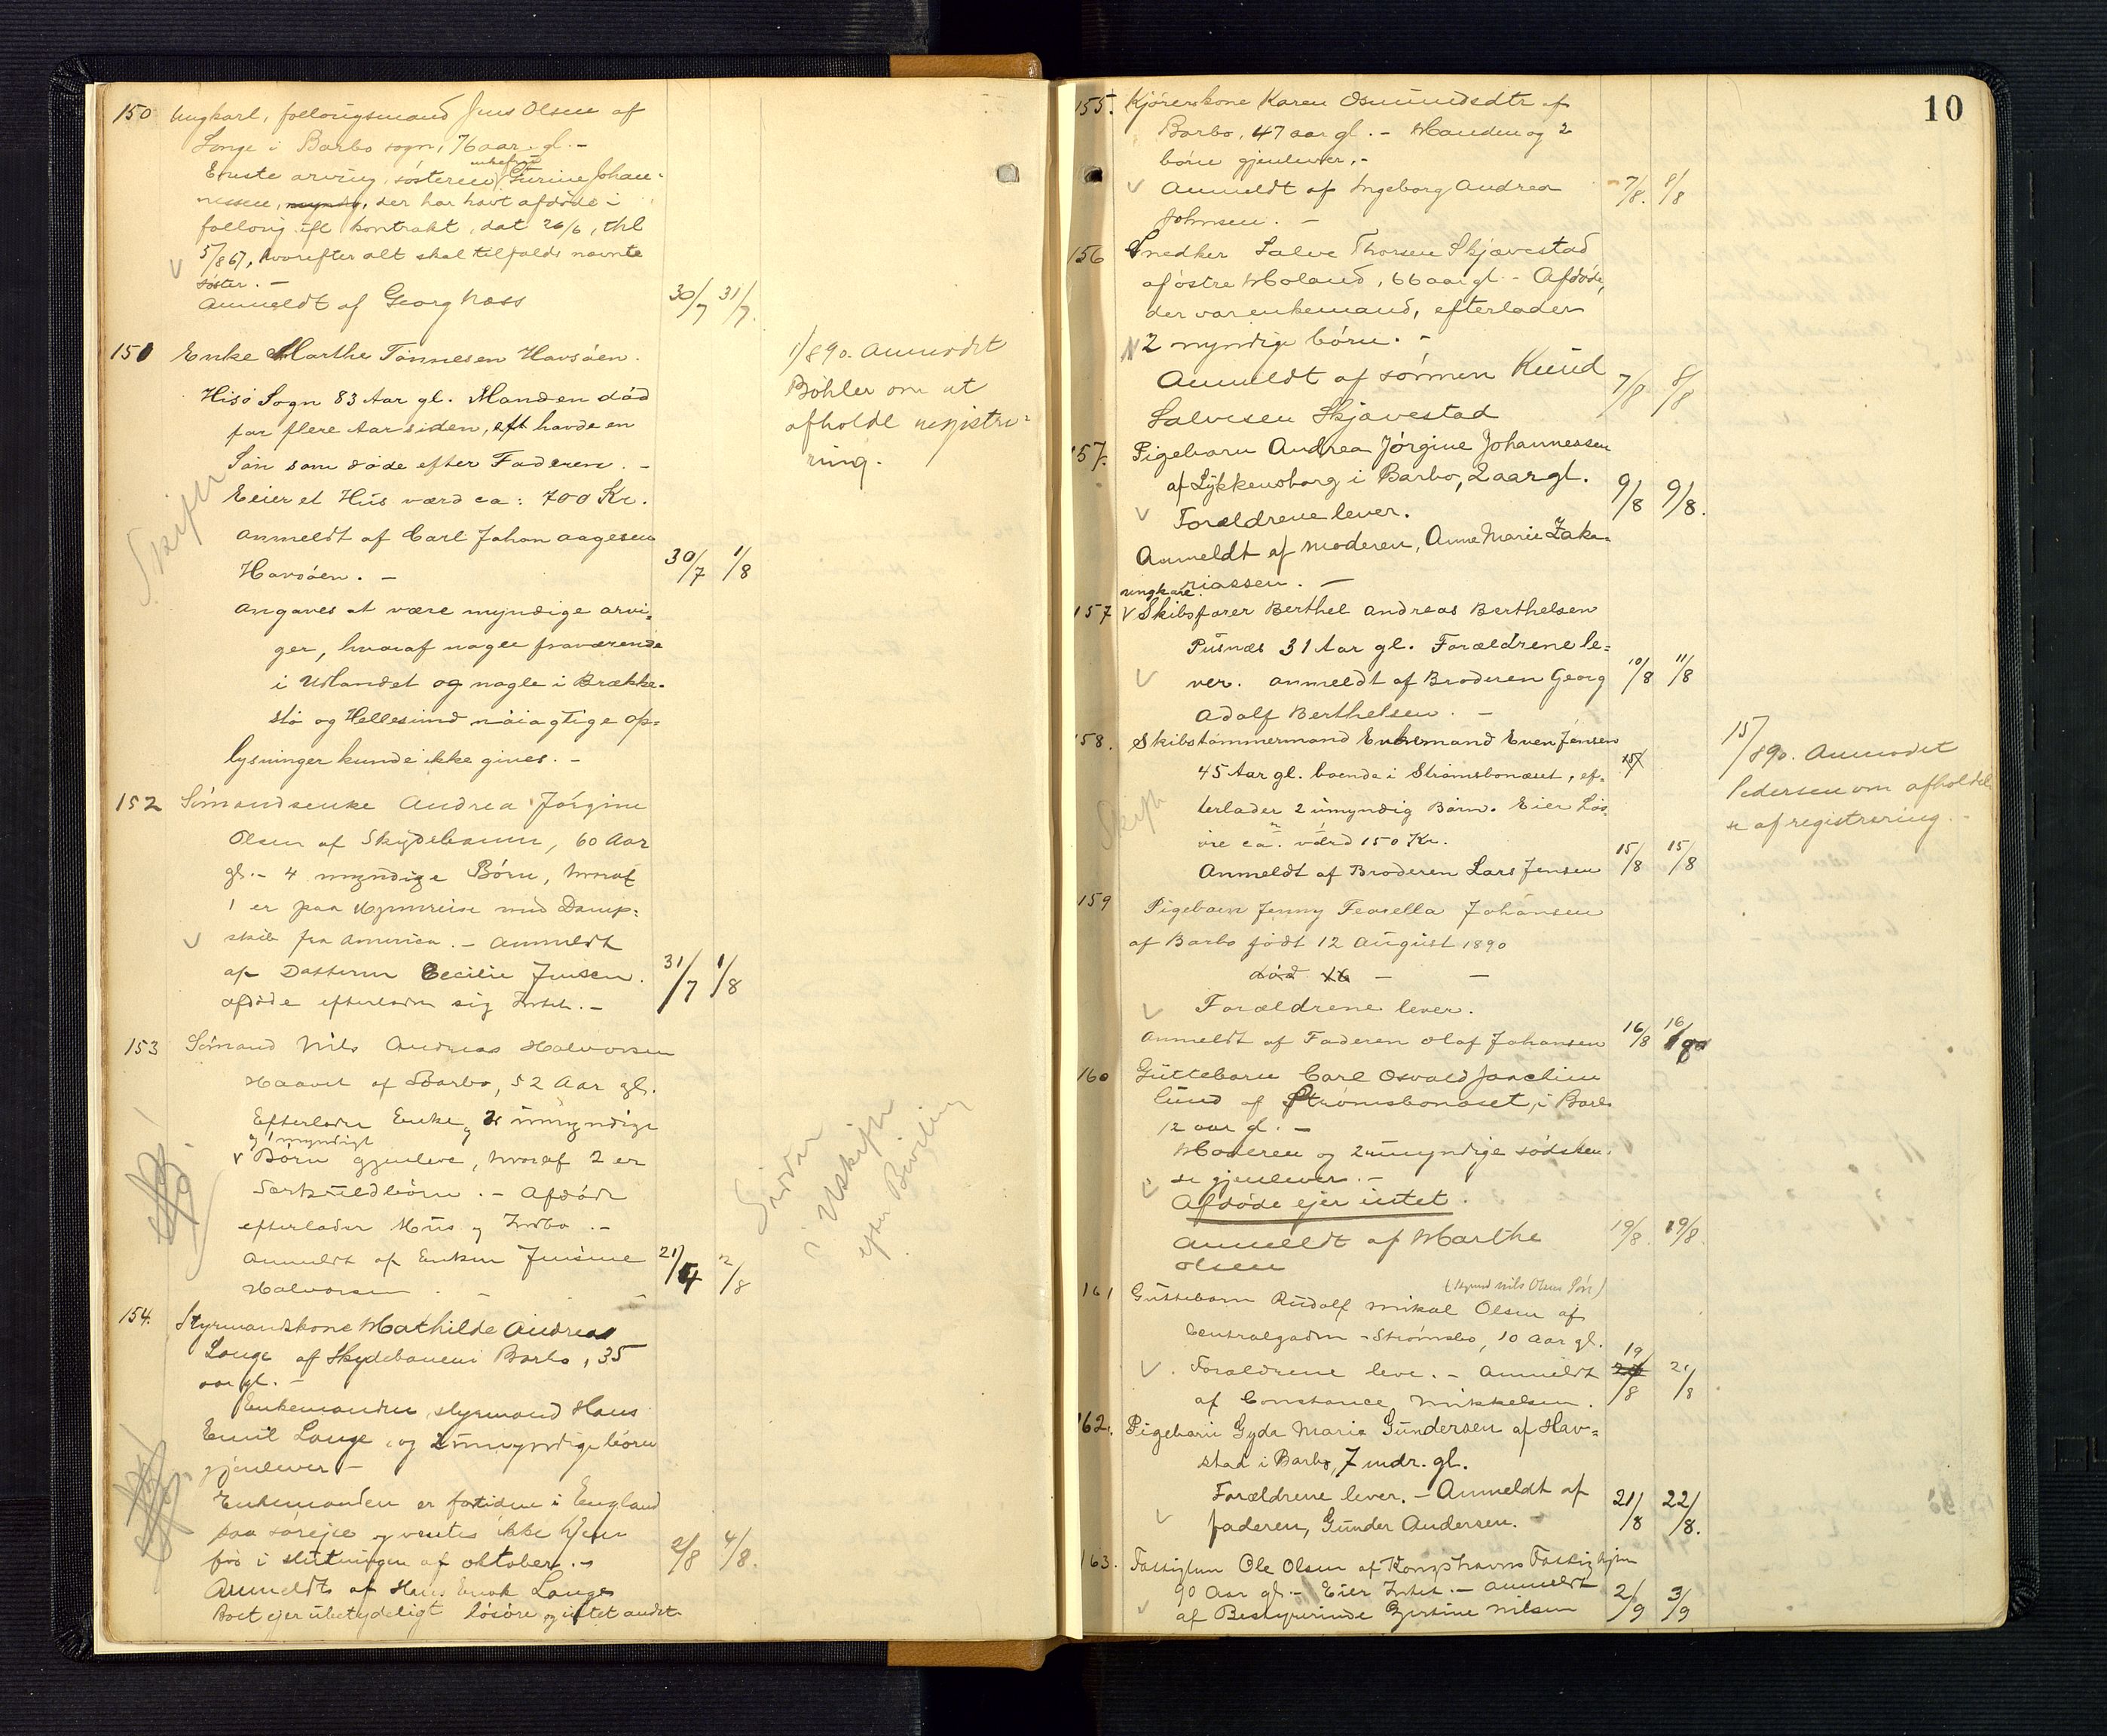 150 Ungkarl, follougsmand Jens Olsen af
Longe i Barbo sogn, 76 aar gl. –
Eneste arving, søsteren, Gurine Johan-
nessen, der har havt afdøde i
folloug ifl kontrakt, dat 26/6, thl
5/8 67, hvorefter alt skal tilfalde nævnte
søster. –
Anmeldt af Georg Næss 30/7 31/7.
151 Enke Marthe Tønnesen Havsøen.
Hisø Sogn 83 Aar gl. Manden død
for flere Aar siden, havde en
Søn som døde efter Faderen. –
Eeier et Hus værd ca: 700 Kr.
Skifte
Anmeldt af Carl Johan Aagesen
Havsøen. – 30/7 1/8
Angaves at være myndige arvi-
ger, hvoraf nogle fraværende
i Udlandet og nogle i Brække-
stø og Hellesund nøiagtige op-
lysninger kunde ikke gives. –
1/8 90. Anmodet
Bøhler om at
afholde registre-
ring.
152 Sømandsenke Andrea Jørgine
Olsen af Skydebanen, 60 Aar
gl. – 4 myndige Børn, hvoraf
1 er paa Hjemreise med Damp-
skib fra Amerika. – Anmeldt
af Datteren Cecilie Jensen. 31/7 1/8
afdøde efterlader sig Intet. –
153 Sømand Nils Andreas Halvorsen
Haavet af Barbo, 52 Aar gl.
Efterlader Enke, og 2 umyndige
og 1 myndigt
Børn gjenleve, hvoraf 2 er
Særkuldbørn. – Afdøde
efterlader Hus og Indbo. –
Anmeldt af Enken Jensine 21/7 2/8
Halvorsen. –
Sidder
i Uskifte
efter Bevilling
154. Styrmandskone Mathilde Andrea
Longe af Skydebanen i Barbo, 35
aar gl. –
Enkemanden, styrmand Hans
Emil Longe, og 2 umyndige børn
gjenlever –
Enkemanden er for tiden i England
paa sørejse og ventes ikke hjem
før i slutningen af oktober. – 2/8 4/8.
Anmeldt af Hans Enok Longe
Boet ejer ubetydeligt løsøre og intet andet.
10
155. Kjørerskone Karen Osmundsdtr af
Barbo, 47 aar gl. – Manden og 2
børn gjenlever. –
Anmeldt af Ingeborg Andrea 7/8. 8/8
Johnsen. –
156 Snedker Salve Thorsen Skjævestad
af østre Moland, 66 aar gl – Afdøde,
der var enkemand, efterlader
2 myndige børn. –
Anmeldt af sønnen Knud 7/8 8/8
Salvesen Skjævestad
157. Pigebarn Andrea Jørgine Johannessen
af Lykkensborg i Barbo, 2 aar gl. 9/8 9/8.
Forældrene lever.
Anmeldt af moderen, Anne Marie Zaka-
riassen. –
ungkarl
157 Skibsfører Berthel Andreas Berthelsen
Pusnæs 31 Aar gl. Forældrene le-
ver. Anmeldt af Broderen Georg 10/8 11/8
Adolf Berthelsen. –
158. Skibstømmermand Enkemand Even Jensen
45 Aar gl. boende i Strømsbonæset, ef-
terlader 2 umyndig Børn. Eier Løs
øre ca. værd 150 Kr.
Anmeldt af Broderen Lars Jensen 15/8 15/8
Skifte
15/8 90. Anmodet
Pedersen om afholdel
se af registrering. –
159 Pigebarn Jenny Feorella Johansen
af Barbo født 12 August 1890
død 16 – –
Forældrene lever.
Anmeldt af Faderen Olaf Johansen 16/8 16/8 90
160 Guttebarn Carl Osvald Joachim
Lund af Strømsbonæset, i Barb
12 aar gl. –
Moderen og 2 umyndige sødsken-
de gjenlever. –
Afdøde ejer intet.
Anmeldt af Marthe 19/8. 19/8.
Olsen
161 (Styrmd Nils Olsens Søn)
Guttebarn Rudolf Mikal Olsen af
Centralgaden – Strømsbo, 10 Aar gl.
Forældrene leve. – Anmeldt 19/8 21/8
af Constance Mikkelsen.
162. Pigebarn Gyda Maria Gundersen af Hav-
stad i Barbo, 7 mdr. gl.
Forældrene lever. – Anmeldt af 21/8 22/8.
faderen, Gunder Andersen.
163. Fattiglem Ole Olsen af Fattighjem
90 Aar gl. – Eier Intet. – Anmeldt 2/9 3/9
af Bestyrerinde Nilsen